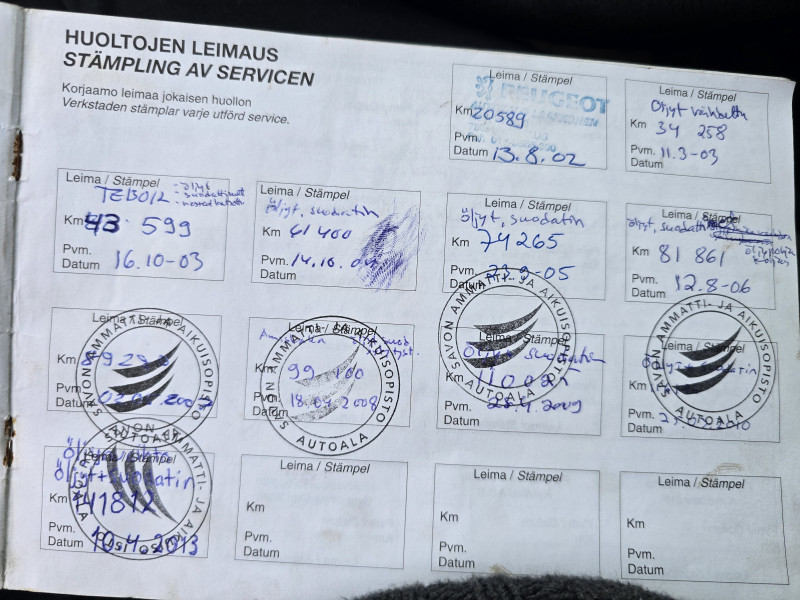 HUOLTOJEN LEIMAUS
STÄMPLING AV SERVICEN
Korjaamo leimaa jokaisen huollon
Verkstaden stämplar varje utförd service.
Leima / Stämpel
PEUGEOT
Km 20589
Pvm.
Datum 13.8.02
Leima / Stämpel
Öljyt
Km 34 258
Pvm. 11.3-03
Datum
Leima / Stämpel
TEBOIL - öljyt
- suodattimet
Km 43 599
Pvm.
Datum 16.10-03
Leima / Stämpel
öljyt, suodatin
Km 61 400
Pvm. 14.10.
Datum
Leima / Stämpel
öljyt, suodatin
Km 74 265
Pvm. 23.9-05
Datum
Leima / Stämpel
öljyt, suodatin
Km 81 861
Pvm. 12.8-06
Datum
Leima / Stämpel
Km
Pvm.
Datum
SAVON AMMATTI- JA AIKUISOPISTO
AUTOALA
Leima / Stämpel
Km 99 100
Pvm. 18.04.2008
Datum
SAVON AMMATTI- JA AIKUISOPISTO
AUTOALA
Leima / Stämpel
Öljyt + suodatin
Km
Pvm. 28.4.2009
Datum
SAVON AMMATTI- JA AIKUISOPISTO
Leima / Stämpel
Öljyt + suodatin
Km
Pvm.
Datum
SAVON AMMATTI- JA AIKUISOPISTO
AUTOALA
Leima / Stämpel
Öljyt + suodatin
Km 141812
Pvm.
Datum 10.4.2013
SAVON AMMATTI- JA AIKUISOPISTO
AUTOALA
Leima / Stämpel
Km
Pvm.
Datum
Leima / Stämpel
Km
Pvm.
Datum
Leima / Stämpel
Km
Pvm.
Datum